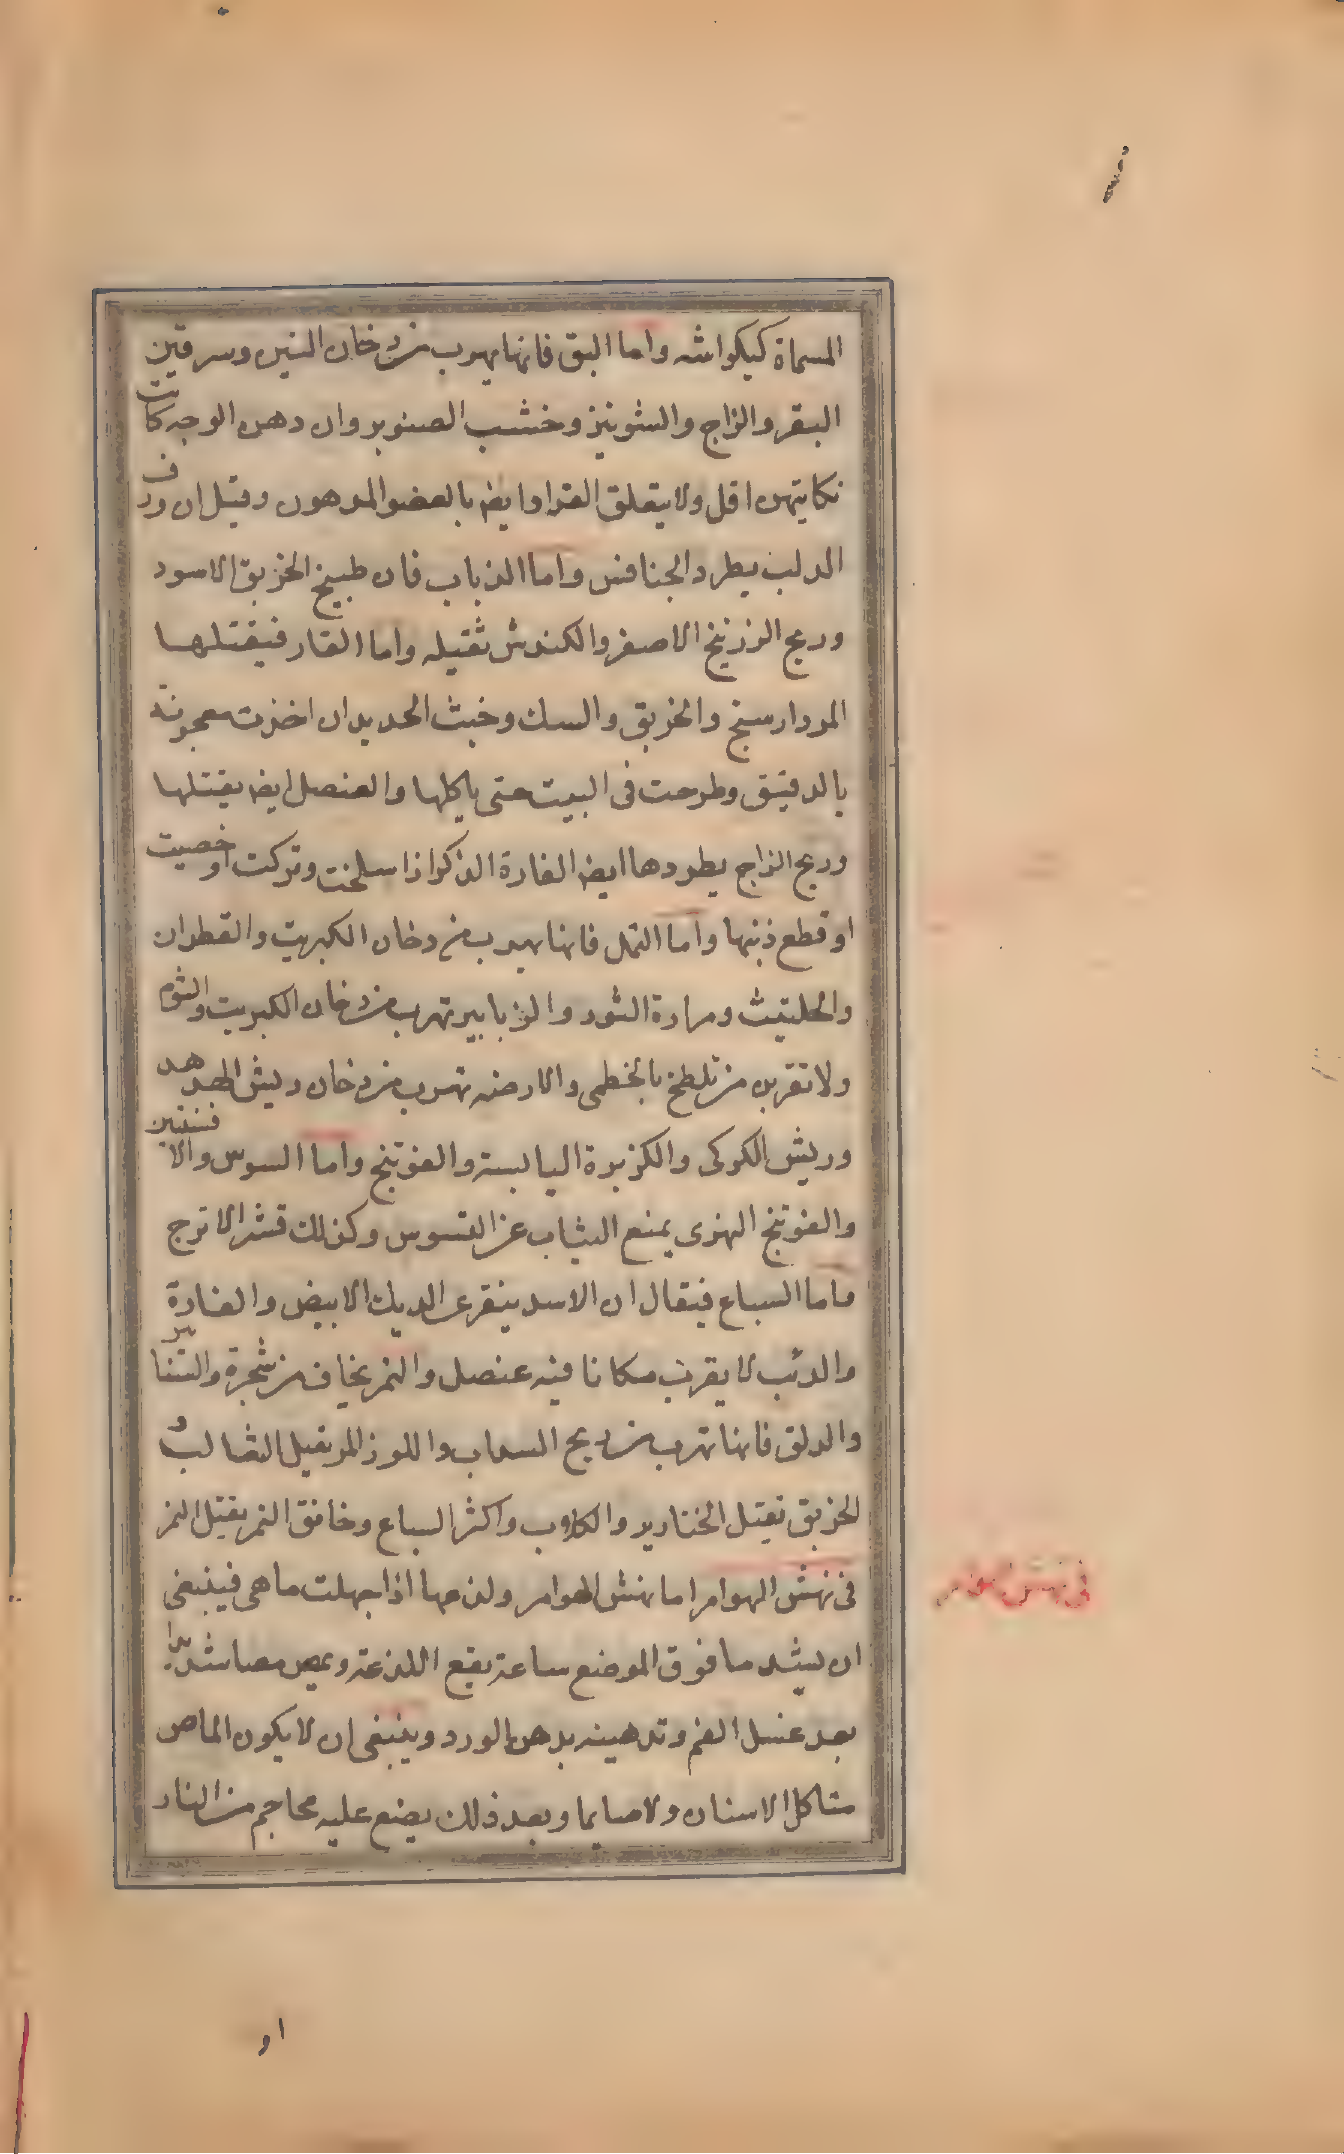 المسماة كيكواشه واما البق فانها يهرب من دخان التين وسرقين
البقر والزاج والشونيز وخشب الصنوبر وان دهن الوجه كانت
نكايتهن اقل ولا يتعلق القراد ايضا بالعضو المدهون وقيل ان ورق
الدلب يطرد الخنافس واما الذباب فان طبيخ الخربق الاسود
وريح الزرنيخ الاصفر والكندش تقتله واما الفار فيقتلها
المردارسنج والخربق والسك وخبث الحديد ان اخذت معجونة
بالدقيق وطرحت في البيت حتى ياكلها والعنصل ايضا يقتلها
وريح الزاج يطردها ايضا الفارة الذكر اذا سلخت وتركت او خصيت
او قطع ذنبها واما النمل فانها يهرب من دخان الكبريت والقطران
والحلتيث ومرارة الثور والزنابير تهرب من دخان الكبريت والثوم
ولا تقربن من تلطخ بالخطمي والارضه تهرب من دخان ريش الهدهد
وريش الكركي والكزبرة اليابسة والفوتنج واما السوس والافسنتين
والفوتنج النهري يمنع الثياب عن التسوس وكذلك قشر الاترج
واما السباع فيقال ان الاسد ينفر عن الديك الابيض والفارة
والذئب لا يقرب مكانا فيه عنصل والنمر يخاف من شجرة والتنانير
والدلق فانها تهرب من ريح السداب واللوز المر يقتل الثعالب و
الخربق تقتل الخنازير والكلاب واكثر السباع وخانق النمر يقتل النمر
في نهش الهوام اما نهش الهوام ولذعها اذا جهلت ما هي فينبغي
ان يشد ما فوق الموضع ساعة يقع اللذعة ويمص مصا شديدا
بعد غسل الفم وتدهينه بدهن الورد وينبغي ان لا يكون الماص
متاكل الاسنان ولا صايما وبعد ذلك يضع عليه محاجم من النار
في نهش الهوام
او